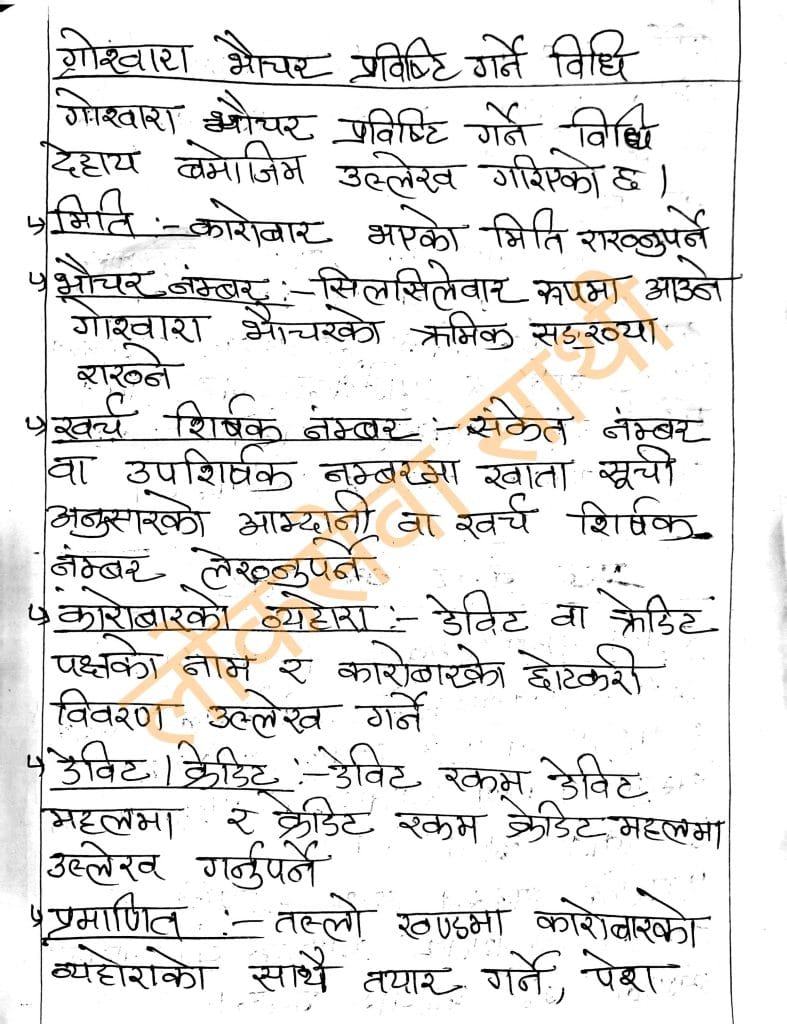 गोश्वारा भौचर प्रविष्टि गर्ने विधि
गोश्वारा भौचर प्रविष्टि गर्ने विधि
देहाय बमोजिम उल्लेख गरिएको छ।
↳ मिति :- कारोबार भएको मिति राख्नुपर्ने
↳ भौचर नंम्बर :- सिलसिलेवार रूपमा आउने
गोश्वारा भौचरको क्रमिक सङ्ख्या
राख्ने
↳ खर्च शिर्षक नंम्बर :- संकेत नंम्बर
वा उपशिर्षक नम्बरमा खाता सूची
अनुसारको आम्दानी वा खर्च शिर्षक
नंम्बर लेख्नुपर्ने
↳ कारोबारको व्यहोरा :- डेविट वा क्रेडिट
पक्षको नाम र कारोबारको छोटकरी
विवरण उल्लेख गर्ने
↳ डेविट / क्रेडिट :- डेविट रकम डेविट
महलमा र क्रेडिट रकम क्रेडिट महलमा
उल्लेख गर्नुपर्ने
↳ प्रमाणित :- तल्लो खण्डमा कारोबारको
व्यहोराको साथै तयार गर्ने, पेश
लोकसेवा साथी